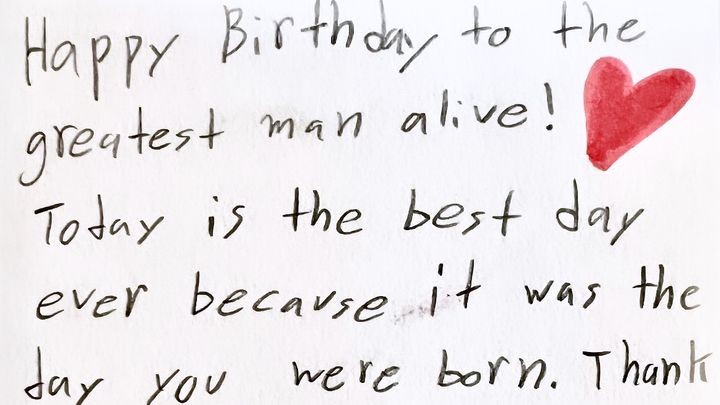 Happy Birthday to the
greatest man alive!
Today is the best day
ever because it was the
day you were born. Thank